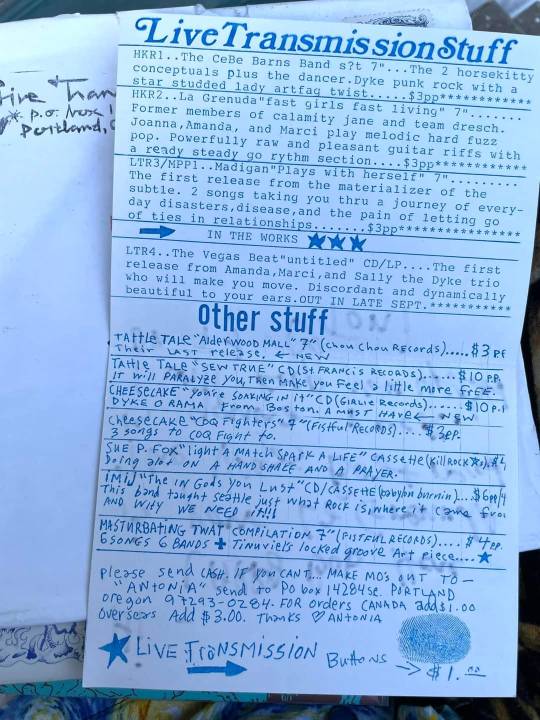 Live Transmission Stuff
HKR1..The CeBe Barns Band s?t 7"...The 2 horsekitty
conceptuals plus the dancer.Dyke punk rock with a
star studded lady artfag twist.....$3pp************
HKR2..La Grenuda"fast girls fast living" 7".......
Former members of calamity jane and team dresch.
Joanna,Amanda, and Marci play melodic hard fuzz
pop. Powerfully raw and pleasant guitar riffs with
a ready steady go rythm section....$3pp************
LTR3/MPP1..Madigan"Plays with herself" 7".........
The first release from the materializer of the
subtle. 2 songs taking you thru a journey of every-
day disasters,disease,and the pain of letting go
of ties in relationships.......$3pp****************
IN THE WORKS
LTR4..The Vegas Beat"untitled" CD/LP....The first
release from Amanda,Marci,and Sally the Dyke trio
who will make you move. Discordant and dynamically
beautiful to your ears.OUT IN LATE SEPT.***********
Other stuff
TATTLE TALE "AlderWOOD MALL" 7" (Chou Chou Records).....$3 PP
Their LAST release. ← NEW
TATTLE TALE "SEW TRUE" CD (St. FRANCIS RECORDS)......$10 P.P.
IT will PARALYZE you, Then MAKE you Feel a little more FREE.
CHEESECAKE "You're SOAKING IN it" CD (Girlie Records)......$10 P.P
DYKE O RAMA From Boston. A MUST HAVE ← NEW
Cheesecake "COQ Fighters" 7" (Fistful RECORDS).... $3pp.
3 songs to COQ Fight to.
SUE P. FOX "Light A MAtch SPARK A LIFE" CASSETTE (Kill ROCK
Doing alot ON A HAND SHAKE AND A PRAYER.
"The IN Gods You Lust" CD/CASSETTE (babylon burnin)....$6pp/
This band taught Seattle just what Rock is, where it came from
AND WHY WE NEED it!!!
MASTURBATING TWAT COMPILATION 7" (FISTFUL RECORDS).... $4 pp.
6 SONGS 6 BANDS + Tinuviels locked groove Art piece....
please send CASH. IF YOU CANT... MAKE MO's OUT TO —
"ANTONIA" send to PO box 14284 se. PORTLAND
oregon 97293-0284. FOR orders CANADA add $1.00
overseas Add $3.00. Thanks ♡ ANTONIA
LIVE TRANSMISSION Buttons → $1.00
P.O. Box 1
Portland,